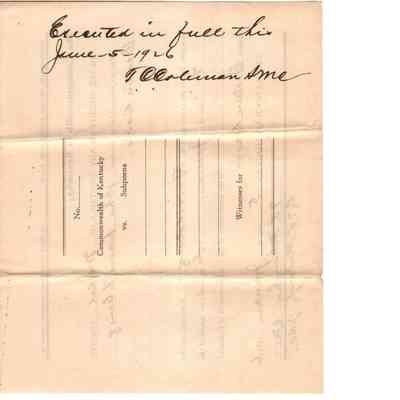 Executed in full this
June-5-1926
T C Coleman S M C
No.
Commonwealth of Kentucky
vs. Subpoena
Witnesses for